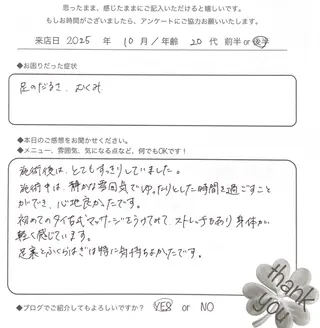 思ったまま、感じたままにご記入いただけると嬉しいです。
もしお時間がございましたら、アンケートにご協力お願いいたします。
来店日 2025 年 10月/年齢 20代 前半or後半
◆お困りだった症状
足のだるさ、むくみ
◆本日のご感想をお聞かせください。
◆メニュー、雰囲気、気になる点など、何でもOKです!
施術後は、とてもすっきりしていました。
施術中は、静かな雰囲気でゆったりとした時間を過ごすこと
ができ、心地良かったです。
初めてのタイ古式マッサージをうけてみて、ストレッチもあり身体が
軽く感じています。
足裏とふくらはぎは特に気持ちよかったです。
thank you
◆ブログでご紹介してもよろしいですか? YES or NO